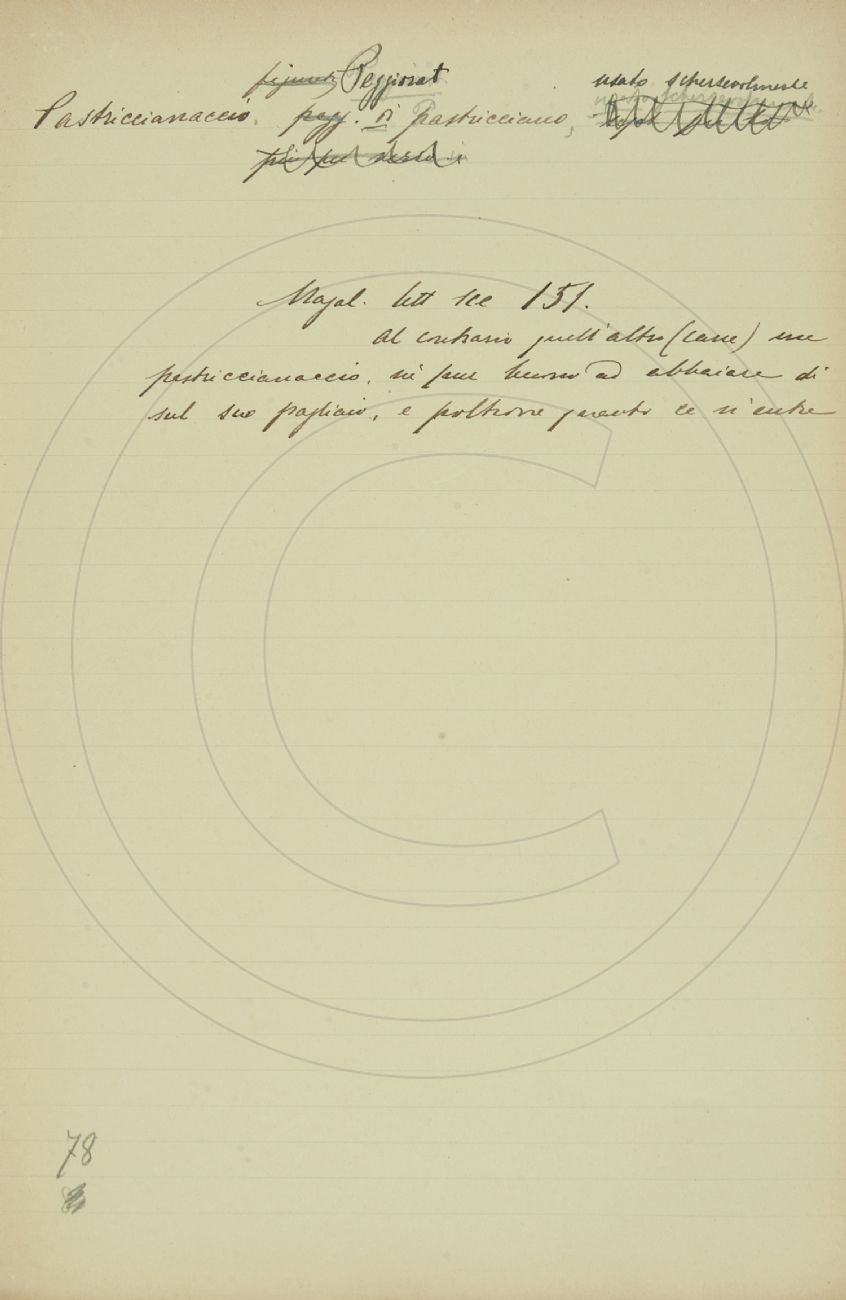 figurat Peggiorat usato scherzevolmente
Pastriccianaccio. pegg. di Pastricciano,
Magal. lett sce 151.
Al contrario quell'altro (cane) un
pastriccianaccio, nè pur buono ad abbaiare di
sul suo pagliaio, e poltrone quanto ce n'entra
78